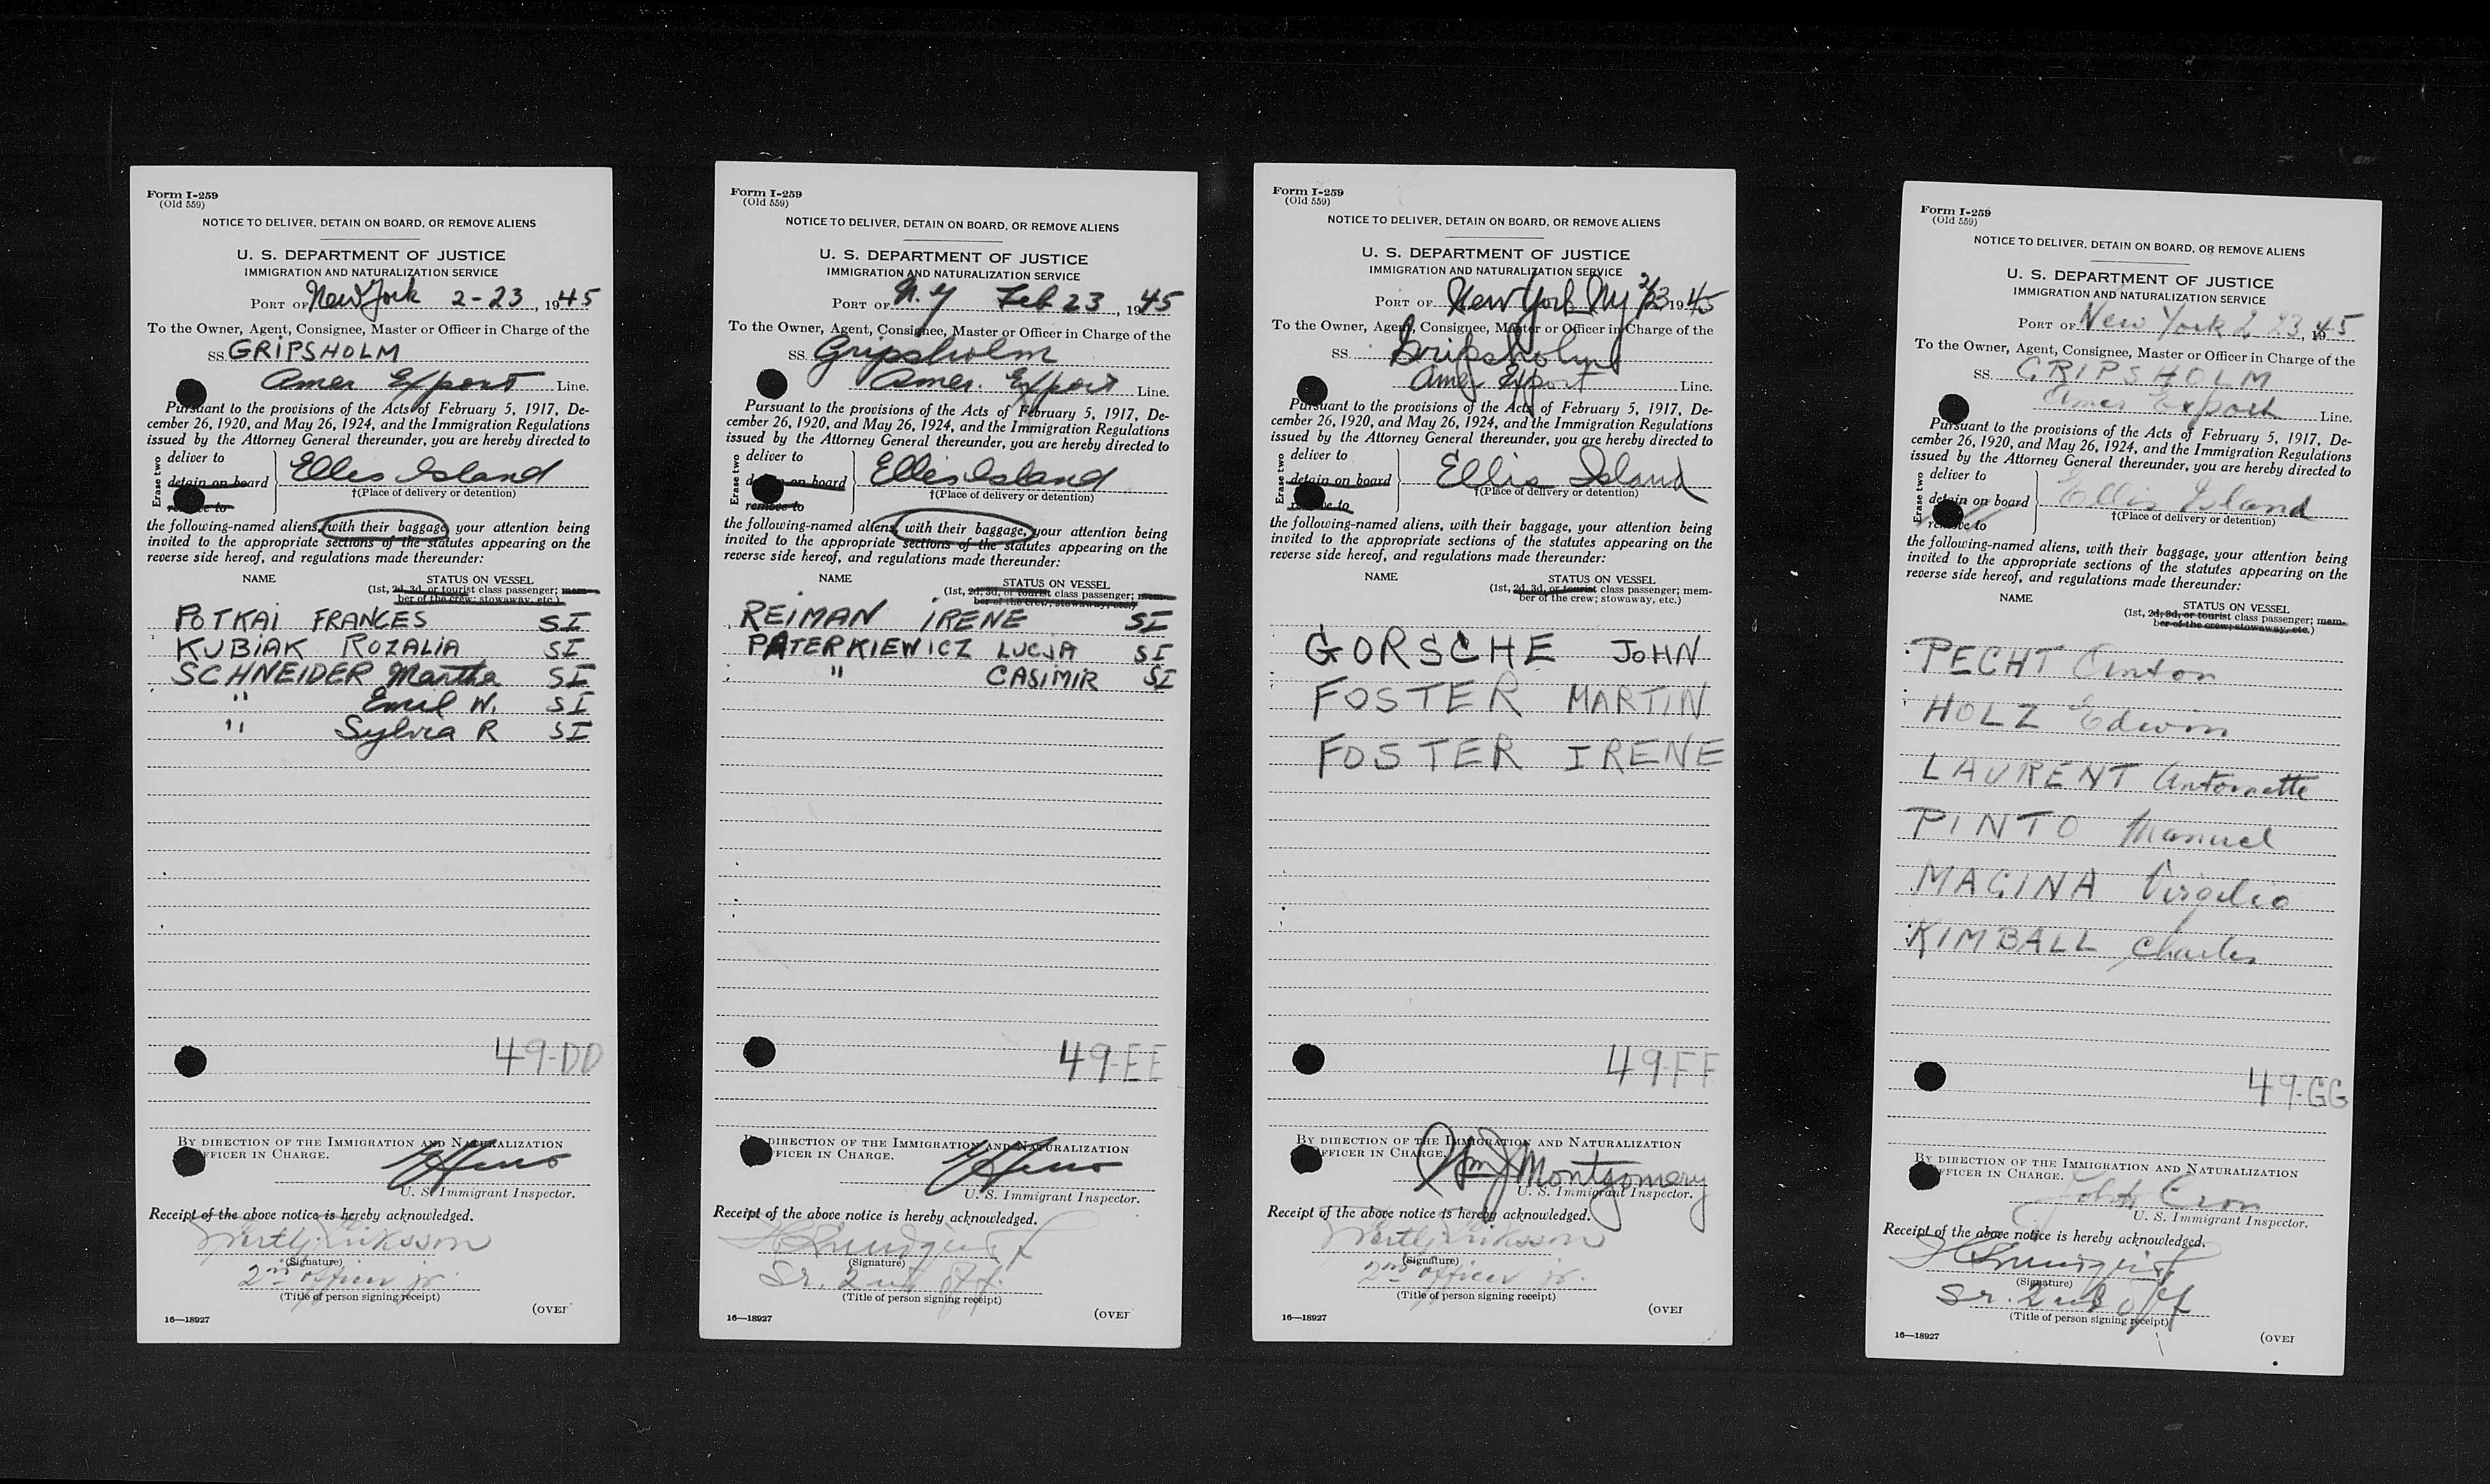 Form I-259
(Old 559)
NOTICE TO DELIVER, DETAIN ON BOARD, OR REMOVE ALIENS
U. S. DEPARTMENT OF JUSTICE
IMMIGRATION AND NATURALIZATION SERVICE
PORT OF New York 2-23, 1945
To the Owner, Agent, Consignee, Master or Officer in Charge of the
SS. GRIPSHOLM
Amer Export Line.
Pursuant to the provisions of the Acts of February 5, 1917, De-
cember 26, 1920, and May 26, 1924, and the Immigration Regulations
issued by the Attorney General thereunder, you are hereby directed to
Erase two
deliver to
detain on board
remove to
Ellis Island
†(Place of delivery or detention)
the following-named aliens, with their baggage, your attention being
invited to the appropriate sections of the statutes appearing on the
reverse side hereof, and regulations made thereunder:
NAME STATUS ON VESSEL
(1st, 2d, 3d, or tourist class passenger; mem-
ber of the crew; stowaway, etc.)
POTKAI FRANCES SI
KUBIAK ROZALIA SI
SCHNEIDER Martha SI
" Emil W. SI
" Sylvia R SI
49-DD
BY DIRECTION OF THE IMMIGRATION AND NATURALIZATION
OFFICER IN CHARGE.
U. S. Immigrant Inspector.
Receipt of the above notice is hereby acknowledged.
Eriksson
(Signature)
2nd officer jr.
(Title of person signing receipt)
(OVER
16—18927
Form I-259
(Old 559)
NOTICE TO DELIVER, DETAIN ON BOARD, OR REMOVE ALIENS
U. S. DEPARTMENT OF JUSTICE
IMMIGRATION AND NATURALIZATION SERVICE
PORT OF N.Y Feb 23, 1945
To the Owner, Agent, Consignee, Master or Officer in Charge of the
SS. Gripsholm
Amer. Export Line.
Pursuant to the provisions of the Acts of February 5, 1917, De-
cember 26, 1920, and May 26, 1924, and the Immigration Regulations
issued by the Attorney General thereunder, you are hereby directed to
Erase two
deliver to
detain on board
remove to
Ellis Island
†(Place of delivery or detention)
the following-named aliens, with their baggage, your attention being
invited to the appropriate sections of the statutes appearing on the
reverse side hereof, and regulations made thereunder:
NAME STATUS ON VESSEL
(1st, 2d, 3d, or tourist class passenger; mem-
ber of the crew; stowaway, etc.)
REIMAN IRENE SI
PATERKIEWICZ LUCJA SI
" CASIMIR SI
49-EE
BY DIRECTION OF THE IMMIGRATION AND NATURALIZATION
OFFICER IN CHARGE.
U. S. Immigrant Inspector.
Receipt of the above notice is hereby acknowledged.
(Signature)
Sr. 2nd Off.
(Title of person signing receipt)
(OVER
16—18927
Form I-259
(Old 559)
NOTICE TO DELIVER, DETAIN ON BOARD, OR REMOVE ALIENS
U. S. DEPARTMENT OF JUSTICE
IMMIGRATION AND NATURALIZATION SERVICE
PORT OF New York Ny 2/23 1945
To the Owner, Agent, Consignee, Master or Officer in Charge of the
SS. Gripsholm
Amer Export Line.
Pursuant to the provisions of the Acts of February 5, 1917, De-
cember 26, 1920, and May 26, 1924, and the Immigration Regulations
issued by the Attorney General thereunder, you are hereby directed to
Erase two
deliver to
detain on board
remove to
Ellis Island
†(Place of delivery or detention)
the following-named aliens, with their baggage, your attention being
invited to the appropriate sections of the statutes appearing on the
reverse side hereof, and regulations made thereunder:
NAME STATUS ON VESSEL
(1st, 2d, 3d, or tourist class passenger; mem-
ber of the crew; stowaway, etc.)
GORSCHE JOHN
FOSTER MARTIN
FOSTER IRENE
49-FF
BY DIRECTION OF THE IMMIGRATION AND NATURALIZATION
OFFICER IN CHARGE.
Wm J Montgomery
U. S. Immigrant Inspector.
Receipt of the above notice is hereby acknowledged.
Eriksson
(Signature)
2nd officer jr.
(Title of person signing receipt)
(OVER
16—18927
Form I-259
(Old 559)
NOTICE TO DELIVER, DETAIN ON BOARD, OR REMOVE ALIENS
U. S. DEPARTMENT OF JUSTICE
IMMIGRATION AND NATURALIZATION SERVICE
PORT OF New York 2 23, 1945
To the Owner, Agent, Consignee, Master or Officer in Charge of the
SS. GRIPSHOLM
Amer Export Line.
Pursuant to the provisions of the Acts of February 5, 1917, De-
cember 26, 1920, and May 26, 1924, and the Immigration Regulations
issued by the Attorney General thereunder, you are hereby directed to
Erase two
deliver to
detain on board
remove to
Ellis Island
†(Place of delivery or detention)
the following-named aliens, with their baggage, your attention being
invited to the appropriate sections of the statutes appearing on the
reverse side hereof, and regulations made thereunder:
NAME STATUS ON VESSEL
(1st, 2d, 3d, or tourist class passenger; mem-
ber of the crew; stowaway, etc.)
PECHT Anton
HOLZ Edwin
LAURENT Antoinette
PINTO Manuel
MAGINA Virgilio
KIMBALL Charles
49-GG
BY DIRECTION OF THE IMMIGRATION AND NATURALIZATION
OFFICER IN CHARGE.
U. S. Immigrant Inspector.
Receipt of the above notice is hereby acknowledged.
(Signature)
Sr. 2nd Off
(Title of person signing receipt)
(OVER
16—18927